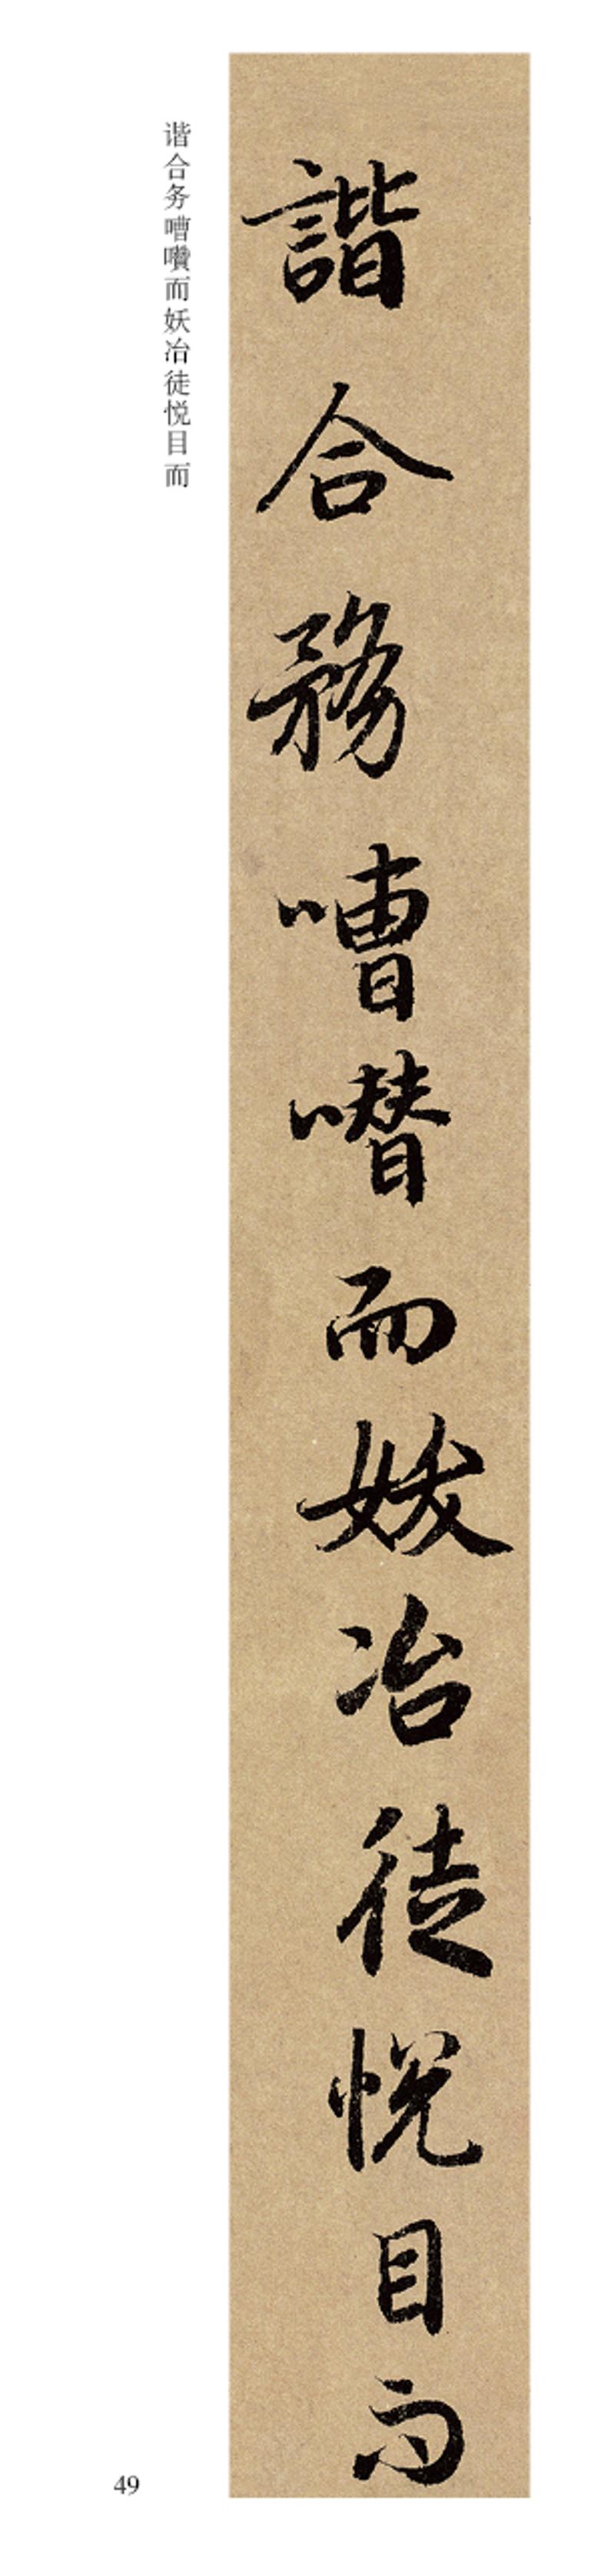 諧合務嘈囋而妖冶徒悅目而
谐合务嘈囋而妖冶徒悦目而
49